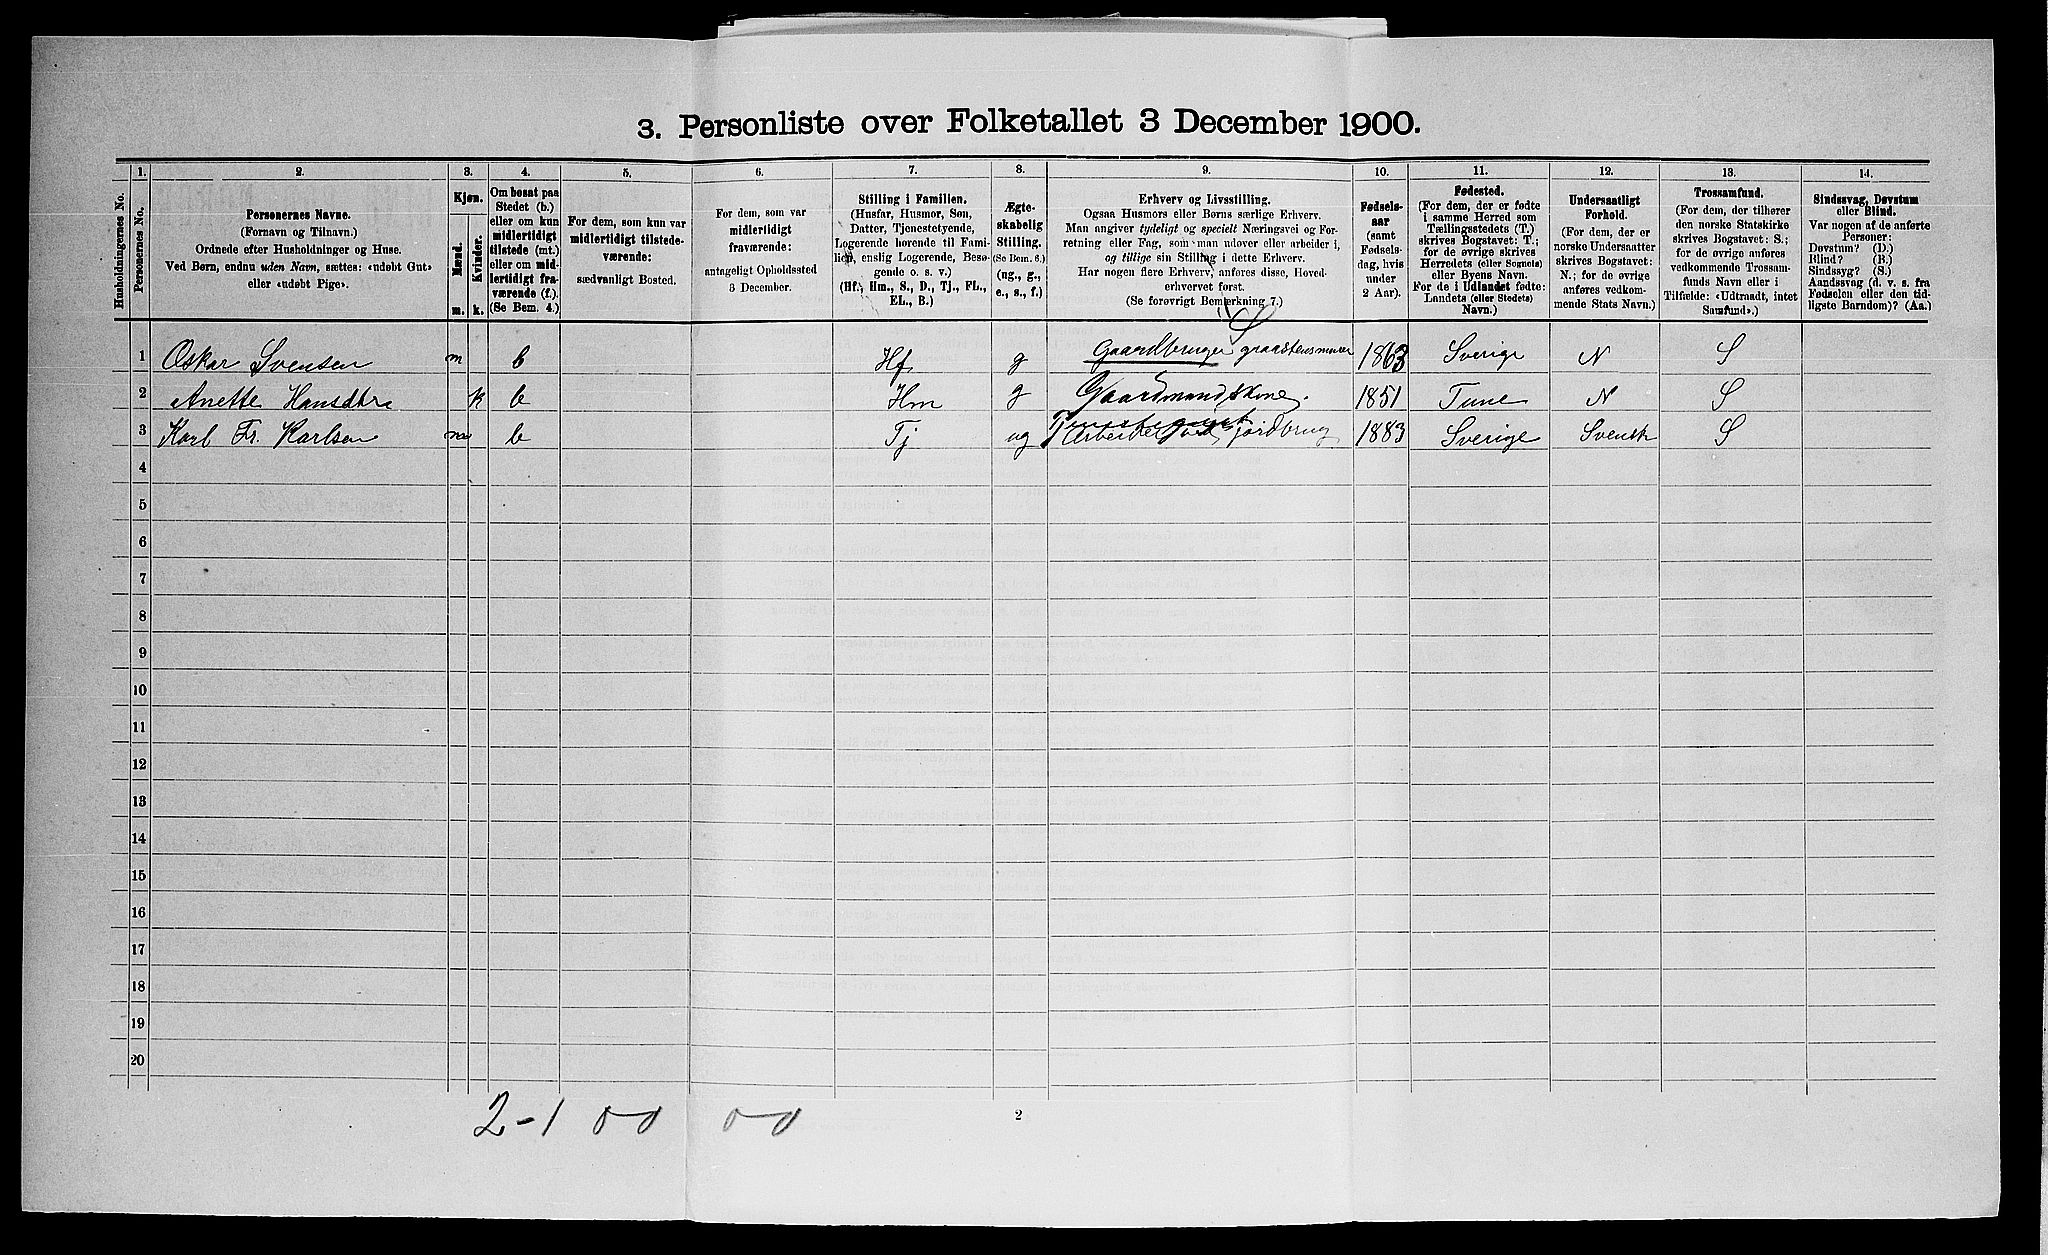 3. Personliste over Folketallet 3 December 1900.
Husholdningernes No.
1.
Personernes No.
2.
Personernes Navne.
(Fornavn og Tilnavn.)
Ordnede efter Husholdninger og Huse.
Ved Børn, endnu uden Navn, sættes: «udøbt Gut»
eller «udøbt Pige».
3.
Kjøn.
Mænd.
Kvinder.
m.
k.
4.
Om bosat paa
Stedet (b.)
eller om kun
midlertidigt
tilstede (mt.)
eller om mid-
lertidigt fra-
værende (f.).
(Se Bem. 4.)
5.
For dem, som kun var
midlertidigt tilstede-
værende:
sædvanligt Bosted.
6.
For dem, som var
midlertidigt
fraværende:
antageligt Opholdssted
3 December.
7.
Stilling i Familien.
(Husfar, Husmor, Søn,
Datter, Tjenestetyende,
Logerende hørende til Fami-
lien, enslig Logerende, Besø-
gende o. s. v.)
(Hf., Hm., S., D., Tj., FL.,
EL., B.)
8.
Ægte-
skabelig
Stilling.
(Se Bem. 8.)
(ug., g.,
e., s., f.)
9.
Erhverv og Livsstilling.
Ogsaa Husmors eller Børns særlige Erhverv.
Man angiver tydeligt og specielt Næringsvei og For-
retning eller Fag, som man udøver eller arbeider i,
og tillige sin Stilling i dette Erhverv.
Har nogen flere Erhverv, anføres disse, Hoved-
erhvervet først.
(Se forøvrigt Bemerkning 7.)
10.
Fødsels-
aar
(samt
Fødsels-
dag, hvis
under
2 Aar).
11.
Fødested.
(For dem, der er fødte
i samme Herred som
Tællingsstedets (T.)
skrives Bogstavet: T.;
for de øvrige skrives
Herredets (eller Sognets)
eller Byens Navn.
For de i Udlandet fødte:
Landets (eller Stedets)
Navn.)
12.
Undersaatligt
Forhold.
(For dem, der er
norske Undersaatter
skrives Bogstavet:
N.; for de øvrige
anføres vedkom-
mende Stats Navn.)
13.
Trossamfund.
(For dem, der tilhører
den norske Statskirke
skrives Bogstavet: S.;
for de øvrige anføres
vedkommende Trossam-
funds Navn eller i
Tilfælde: «Udtraadt, intet
Samfund».)
14.
Sindssvag, Døvstum
eller Blind.
Var nogen af de anførte
Personer:
Døvstum? (D.)
Blind? (B.)
Sindssyg? (S.)
Aandssvag (d. v. s. fra
Fødselen eller den tid-
ligste Barndom)? (Aa.)
1 Oskar Svensen m b Hf g Gaardbruger graastensmurer 1863 Sverige N S
2 Anette Hansdttr k b Hm g Gaardmandskone. 1851 Tune N S
3 Karl Fr. Karlsen m b Tj ug Arbeider ved Jordbrug 1883 Sverige Svensk S
4
5
6
7
8
9
10
11
12
13
14
15
16
17
18
19
20
2-1 0-0 0-0
2